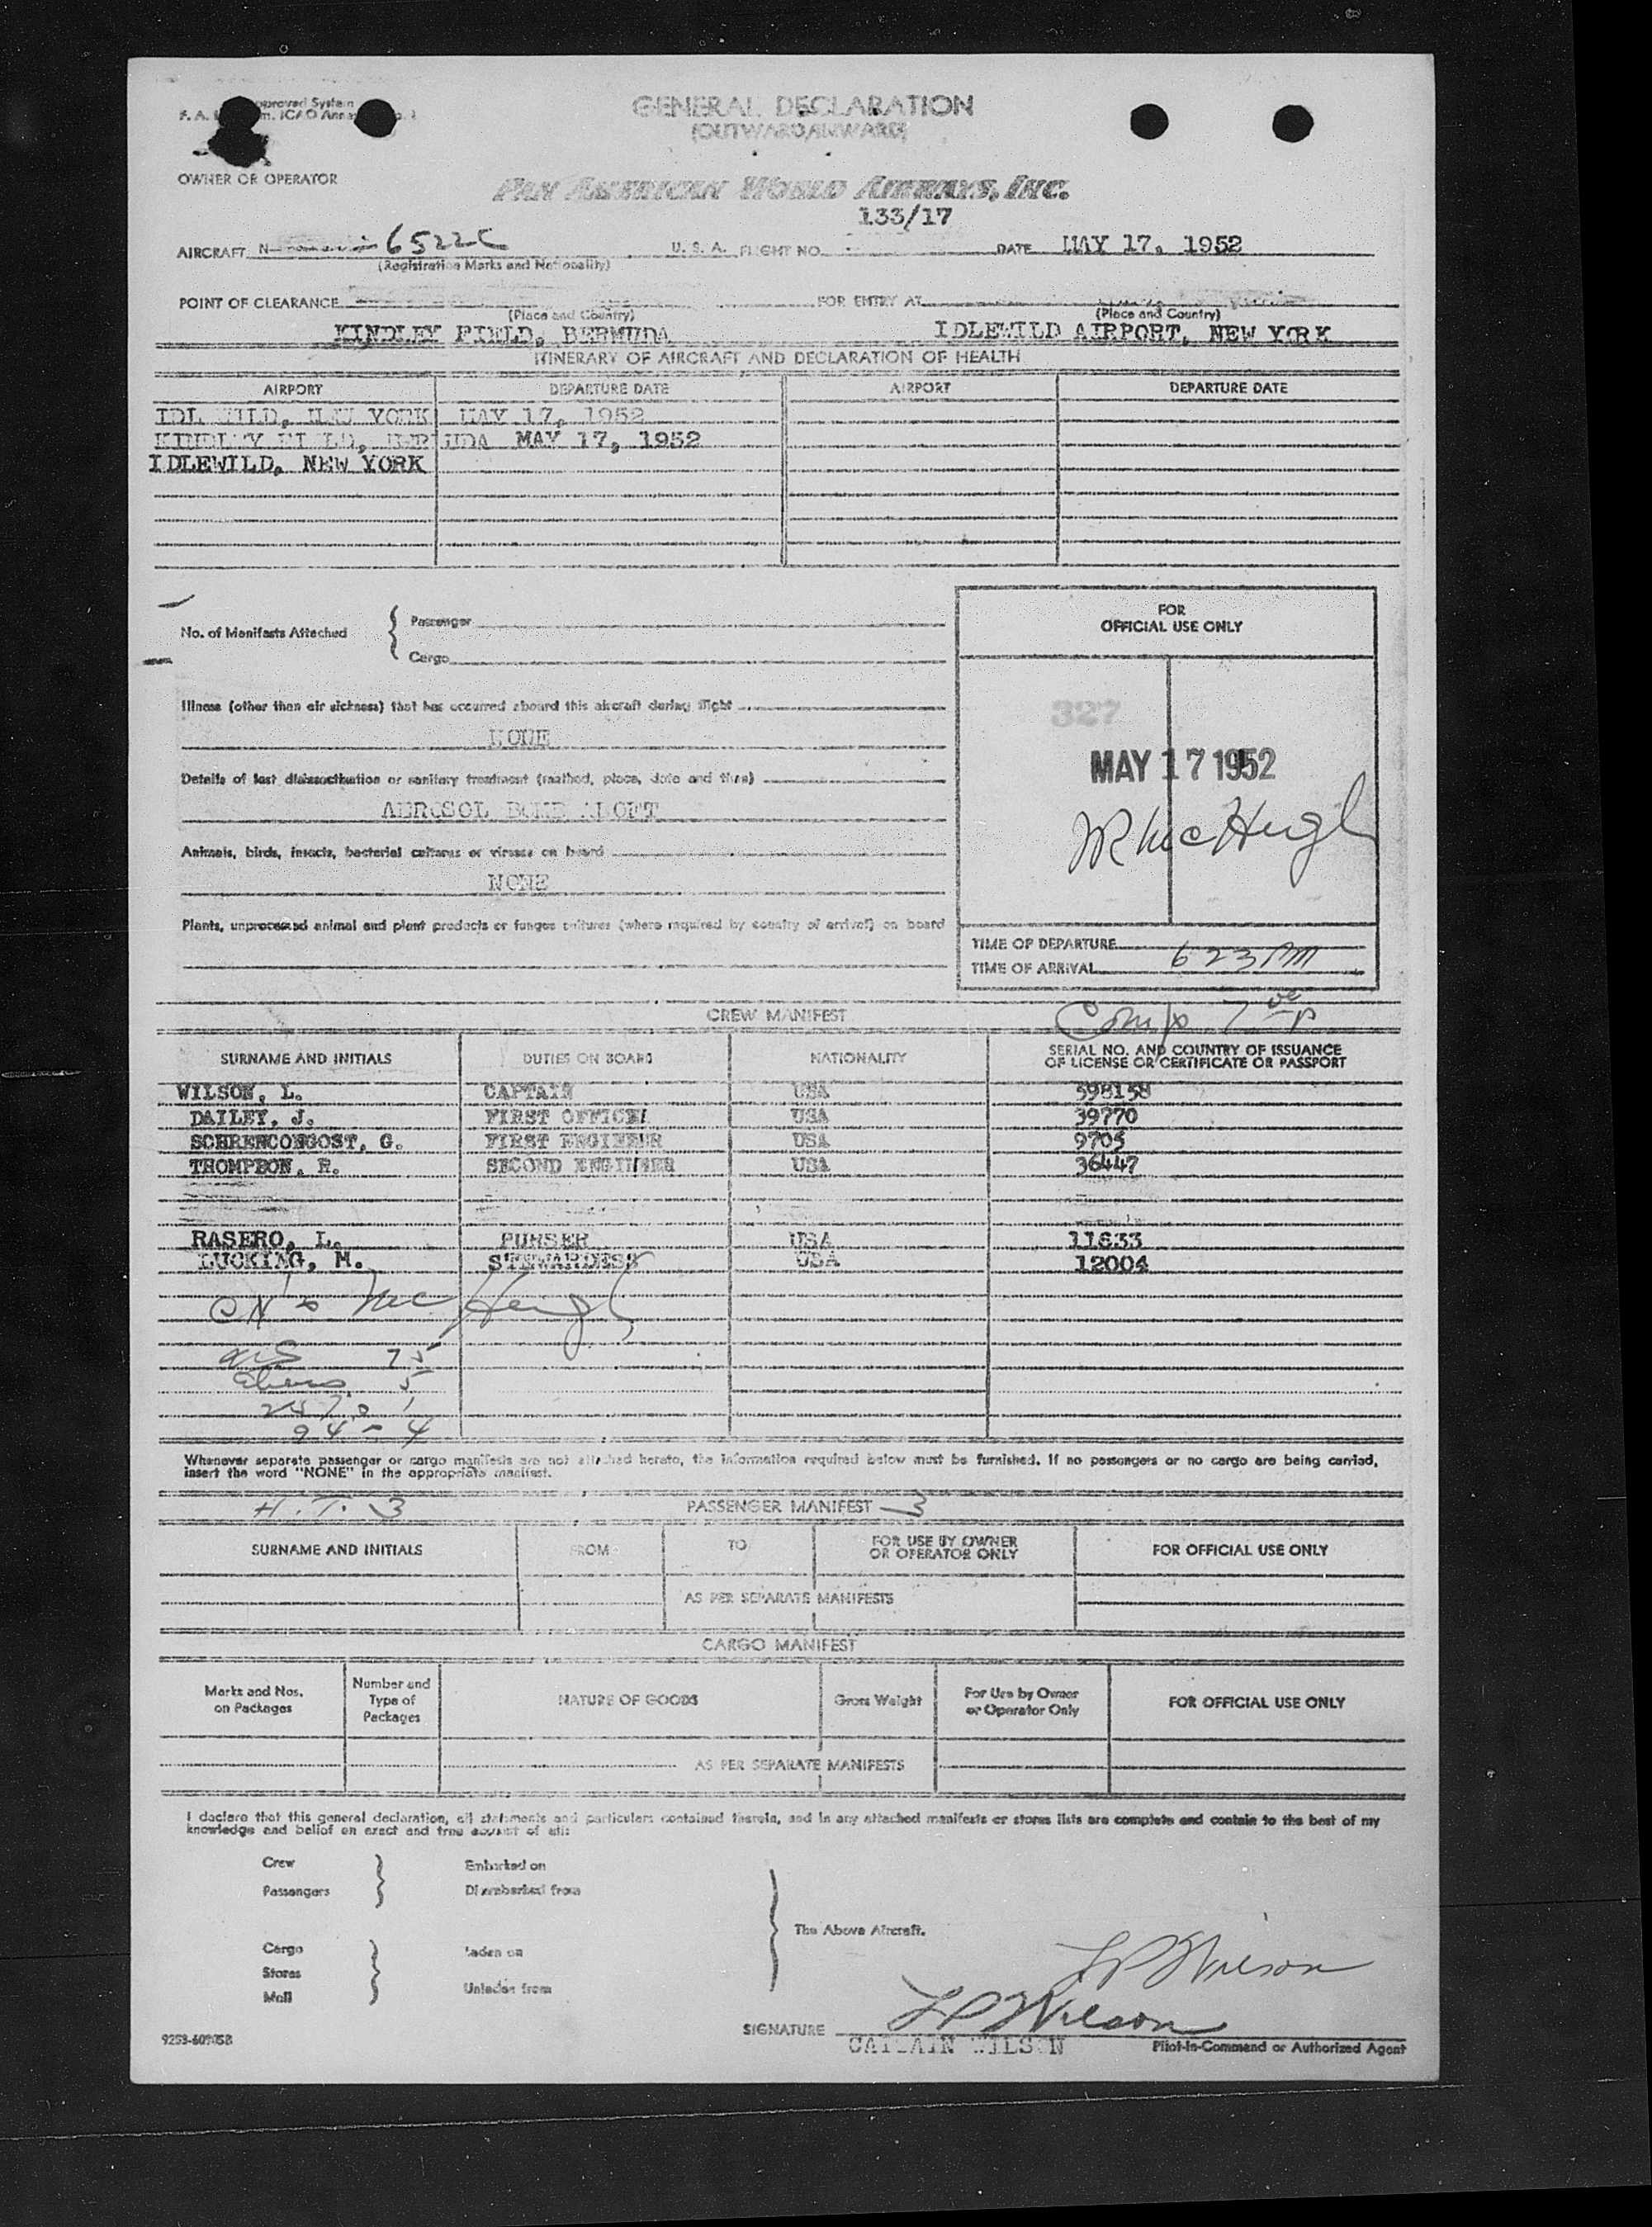 GENERAL DECLARATION
(OUTWARD/INWARD)
OWNER OR OPERATOR
PAN AMERICAN WORLD AIRWAYS, INC.
133/17
AIRCRAFT N- 6522C U. S. A. FLIGHT NO. DATE MAY 17, 1952
(Registration Marks and Nationality)
POINT OF CLEARANCE FOR ENTRY AT
(Place and Country) (Place and Country)
KINDLEY FIELD, BERMUDA IDLEWILD AIRPORT, NEW YORK
ITINERARY OF AIRCRAFT AND DECLARATION OF HEALTH
AIRPORT DEPARTURE DATE AIRPORT DEPARTURE DATE
IDLEWILD, NEW YORK MAY 17, 1952
KINDLEY FIELD, BERMUDA MAY 17, 1952
IDLEWILD, NEW YORK
No. of Manifests Attached
Passenger
Cargo
FOR
OFFICIAL USE ONLY
Illness (other than air sickness) that has occurred aboard this aircraft during flight
NONE
Details of last disinsectization or sanitary treatment (method, place, date and time)
AEROSOL BOMB ALOFT
Animals, birds, insects, bacterial cultures or viruses on board
NONE
Plants, unprocessed animal and plant products or fungus cultures (where required by country of arrival) on board
327
MAY 17 1952
JR McHugh
TIME OF DEPARTURE
TIME OF ARRIVAL 6 23 PM
Comp 7 00 P
CREW MANIFEST
SURNAME AND INITIALS DUTIES ON BOARD NATIONALITY SERIAL NO. AND COUNTRY OF ISSUANCE
OF LICENSE OR CERTIFICATE OR PASSPORT
WILSON, L. CAPTAIN USA 598158
DAILEY, J. FIRST OFFICER USA 39770
SCHRENCONGOST, G. FIRST ENGINEER USA 9705
THOMPSON, R. SECOND ENGINEER USA 36447
RASERO, L. PURSER USA 11633
LUCKING, M. STEWARDESS USA 12004
McHugh
75
5
94 - 4
Whenever separate passenger or cargo manifests are not attached hereto, the information required below must be furnished. If no passengers or no cargo are being carried,
insert the word "NONE" in the appropriate manifest.
H. T. 3 PASSENGER MANIFEST 3
SURNAME AND INITIALS FROM TO FOR USE BY OWNER
OR OPERATOR ONLY FOR OFFICIAL USE ONLY
AS PER SEPARATE MANIFESTS
CARGO MANIFEST
Marks and Nos.
on Packages
Number and
Type of
Packages
NATURE OF GOODS Gross Weight For Use by Owner
or Operator Only FOR OFFICIAL USE ONLY
AS PER SEPARATE MANIFESTS
I declare that this general declaration, all statements and particulars contained therein, and in any attached manifests or stores lists are complete and contain to the best of my
knowledge and belief an exact and true account of all:
Crew Embarked on
Passengers Disembarked from
The Above Aircraft.
Cargo Laden on
Stores
Mail Unladen from
LP Wilson
SIGNATURE LP Wilson
CAPTAIN WILSON Pilot-in-Command or Authorized Agent